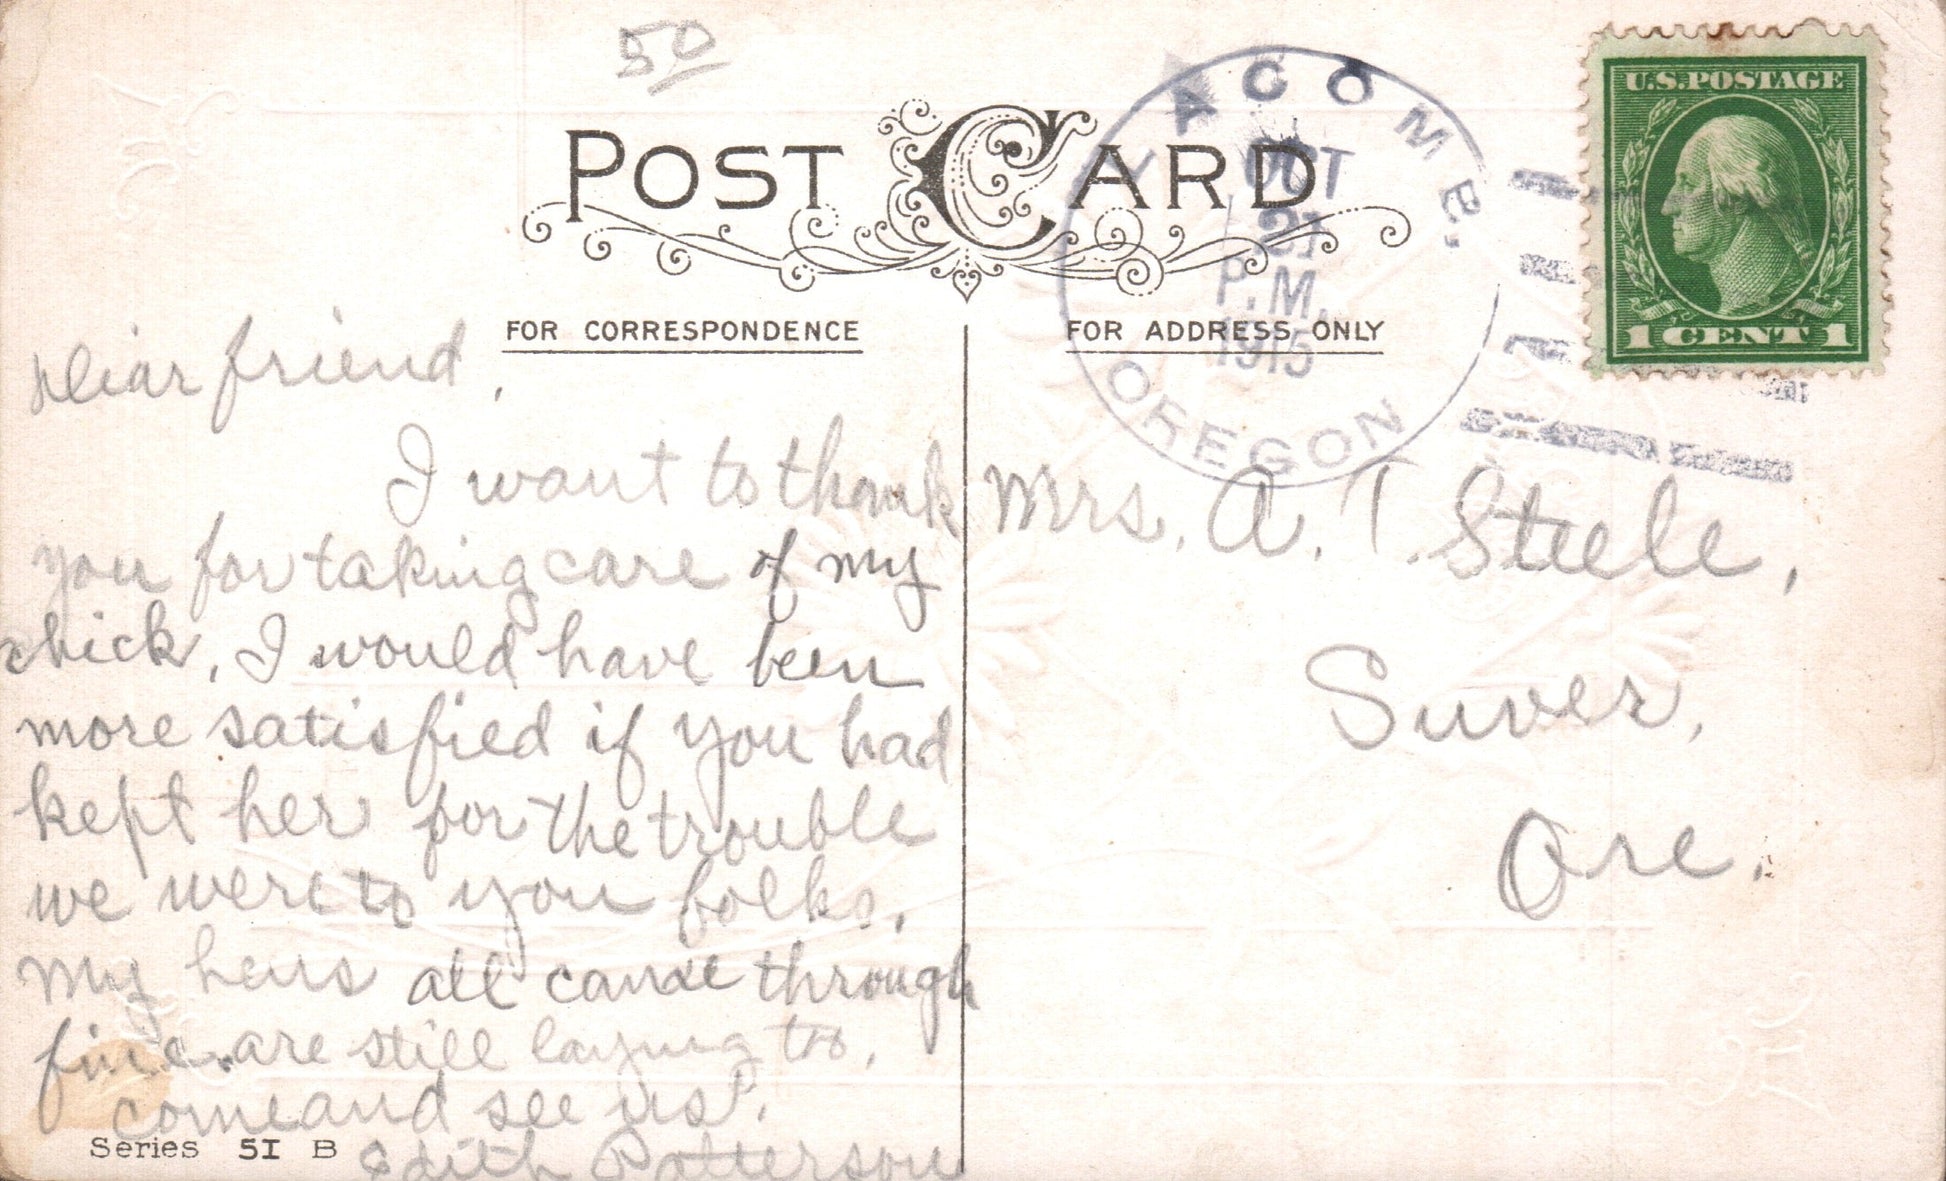 50
POST CARD
YACOMB,
OCT
21
P.M.
1915
OREGON
U.S. POSTAGE
1 CENT 1
FOR CORRESPONDENCE
FOR ADDRESS ONLY
Dear friend,
I want to thank
you for taking care of my
chick, I would have been
more satisfied if you had
kept her for the trouble
we were to you folks,
My hens all came through
fine. are still laying too,
come and see us.
Edith Patterson
Mrs. A. T. Steele,
Suver,
Ore.
Series 51 B